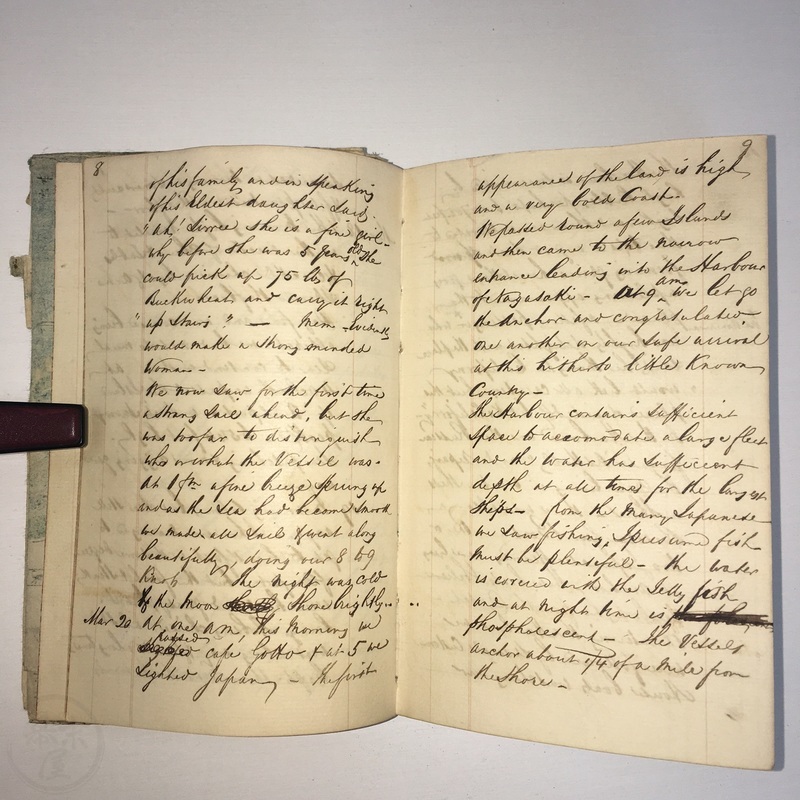 8
of his family and in speaking
of his Eldest daughter said.
"Ah! Sirree She is a fine girl -
why before She was 5 years old She
could pick up 75 lbs of
Buckwheat and carry it right
"up Stairs" — Mem - Evidently
would make a Strong minded
Woman -
We now saw for the first time
a strang Sail ahead, but She
was too far to distinguish
who or what the Vessel was -
At 1 pm a fine breeze Sprung up
and as the Sea had become Smooth
we made all Sail & went along
beautifully, doing our 8 to 9
Knots The night was cold
the moon Shone brightly -
Mar 20 At one am, This Morning we
passed cape Gotto & at 5 we
Sighted Japan - the first
9
appearance of the land is high
and a very bold Coast -
We passed round a few Islands
and then came to the narrow
entrance leading into the Harbour
of Nagasaki - At 9 am we let go
the Anchor and congratulated
one another on our Safe arrival
at this hitherto little Known
Country -
The Harbour contains Sufficient
Space to accomodate a large fleet
and the water has Sufficient
depth at all times for the largest
Ships - from the many Japanese
we Saw fishing, I presume fish
must be plentiful - the water
is covered with the Jelly fish
and at night time is
phospholescent - The Vessels
anchor about 1/4 of a mile from
the Shore -